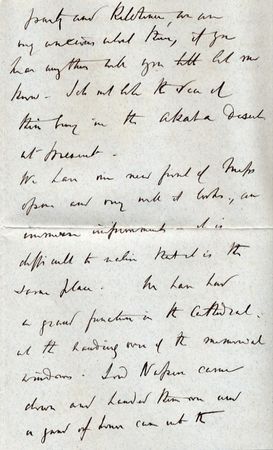 party and Kitchener, we are
very anxious about them, if you
hear anything will you let me
know. I do not like the idea of
their being in the Akaba Desert
at present.
We have our new front of Mess
open and very well it looks, an
immense improvement - it is
difficult to realise that it is the
same place. We have had
a grand function in the Cathedral.
at the handing over of the memorial
windows. Lord Napier came
down and handed them over and
a guard of honor came out the